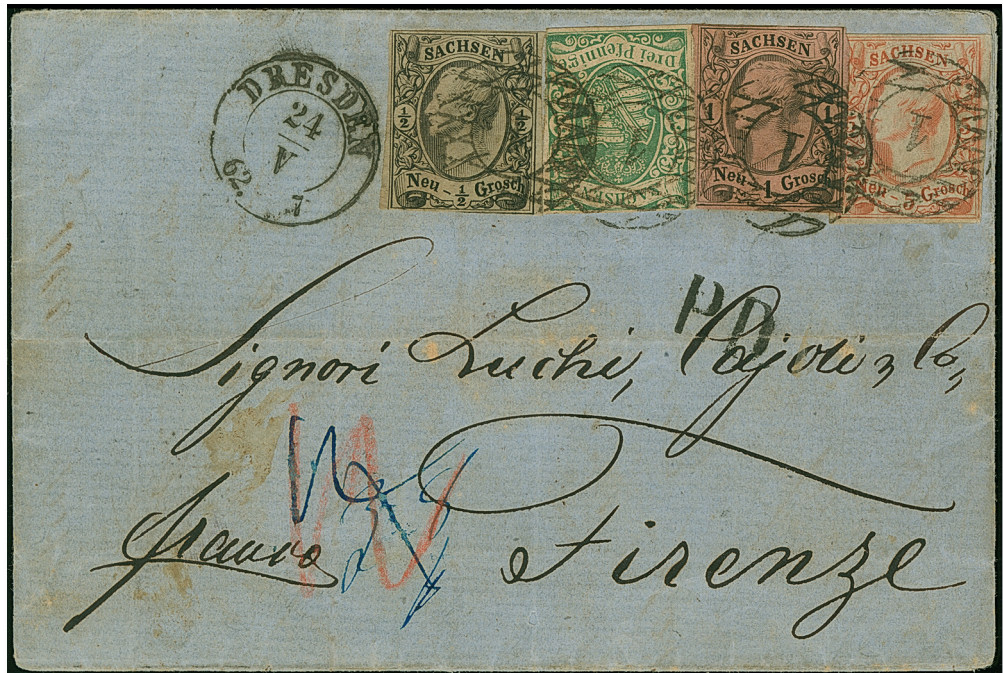 DRESDEN
24
V
62
SACHSEN
½ ½
Neu - ½ Grosch
Drei Pfennige
SACHSEN
SACHSEN
1 1
Neu - 1 Grosch
SACHSEN
Neu - 5 Grosch
1
1
1
P.D.
Signori Luchi,
franco
Firenze